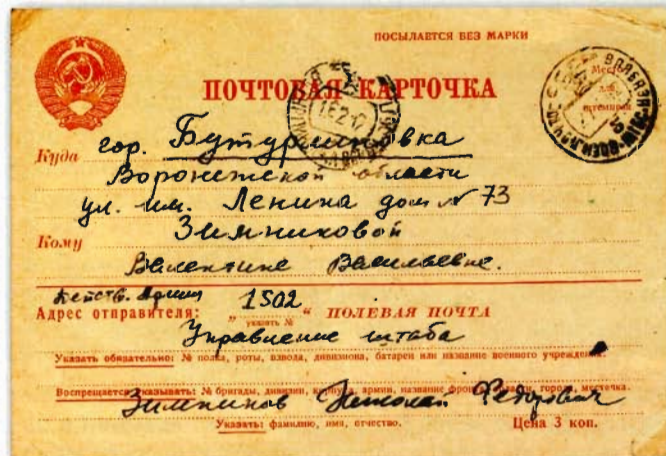 ПОСЫЛАЕТСЯ БЕЗ МАРКИ
ПОЧТОВАЯ КАРТОЧКА
Место
для
штемпеля
Куда гор. Бутурлиновка
Воронежской области
ул. им. Ленина дом № 73
Кому Зимниковой
Валентине Васильевне.
Действ. Армия
Адрес отправителя: „ 1502 “ ПОЛЕВАЯ ПОЧТА
указать №
Управление штаба
Указать обязательно: № полка, роты, взвода, дивизиона, батареи или название военного учреждения.
Воспрещается указывать: № бригады, дивизии, корпуса, армии, название фронта, области, города, местечка.
Зимников Николай Федорович
Указать: фамилию, имя, отчество.
Цена 3 коп.